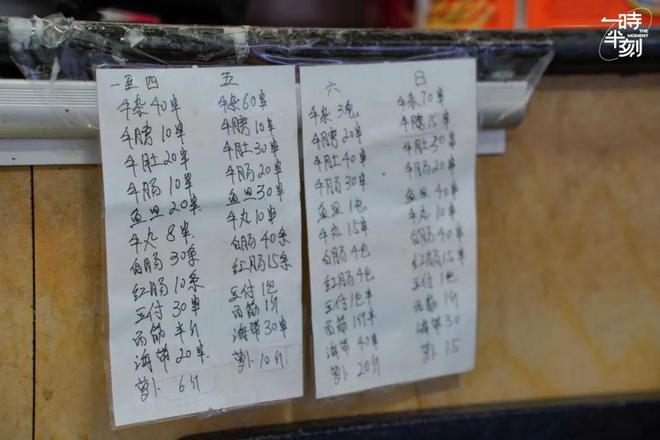 一時半刻
THE MOMENT
一至四
牛杂40串
牛膀10串
牛肚20串
牛肠10串
鱼旦20串
牛丸8串
白肠30条
红肠10条
豆付30串
面筋半斤
海带20串
萝卜6斤
五
牛杂60串
牛膀10串
牛肚30串
牛肠20串
鱼旦30串
牛丸10串
白肠40条
红肠15条
豆付1包
面筋1斤
海带30串
萝卜10斤
六
牛杂3包
牛膀20串
牛肚40串
牛肠30串
鱼旦1包
牛丸15串
白肠4包
红肠4包
豆付1包半
面筋1斤半
海带40串
萝卜20斤
日
牛杂70串
牛膀15串
牛肚30串
牛肠20串
鱼旦40串
牛丸10串
白肠40串
红肠15串
豆付1包
面筋1斤
海带30
萝卜15